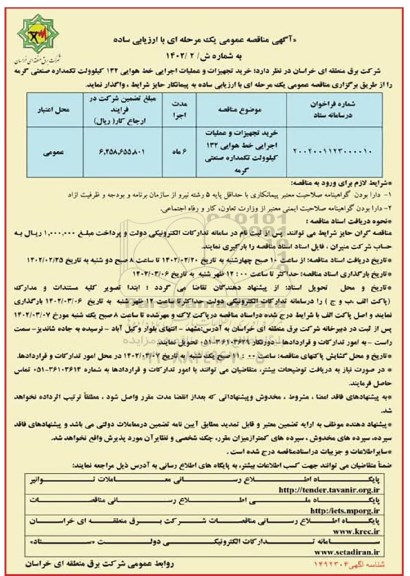 *آگهی مناقصه عمومی یک مرحله ای با ارزیابی ساده
به شماره ش/ ۲ /۱۴۰۲
شرکت برق منطقه ای خراسان در نظر دارد؛ خرید تجهیزات و عملیات اجرایی خط هوایی ۱۳۲ کیلوولت تکمداره صنعتی گرمه
را از طریق برگزاری مناقصه عمومی یک مرحله ای با ارزیابی ساده به پیمانکار حایز شرایط ، واگذار نماید.
شماره فراخوان درسامانه ستاد
موضوع مناقصه
مدت اجرا
مبلغ تضمین شرکت در فرایند ارجاع کار( ریال)
محل اعتبار
۲۰۰۲۰۰۱۱۲۳۰۰۰۰۱۰
خرید تجهیزات و عملیات اجرایی خط هوایی ۱۳۲ کیلوولت تکمداره صنعتی گرمه
۶ ماه
۶,۴۵۸,۶۵۵,۸۰۱
عمومی
*شرایط لازم برای ورود به مناقصه:
۱- دارا بودن گواهینامه صلاحیت معتبر پیمانکاری با حداقل پایه ۵ رشته نیرو از سازمان برنامه و بودجه و ظرفیت آزاد
۲- دارا بودن گواهینامه صلاحیت ایمنی معتبر از وزارت تعاون، کار و رفاه اجتماعی.
*نحوه دریافت اسناد مناقصه :
مناقصه گران حایز شرایط می توانند پس از ثبت نام در سامانه تدارکات الکترونیکی دولت و پرداخت مبلغ ۱,۰۰۰,۰۰۰ ریال به
حساب شرکت منیران ، فایل اسناد مناقصه را بارگیری نمایند.
*تاریخ دریافت اسناد مناقصه: از ساعت ۱۰ صبح چهارشنبه به تاریخ ۱۴۰۲/۰۲/۲۰ تا ساعت ۸ صبح دو شنبه به تاریخ ۱۴۰۲/۰۲/۲۵
*تاریخ بارگذاری اسناد مناقصه: حداکثر تا ساعت ۰۰ : ۱۴ ظهر شنبه به تاریخ ۱۴۰۲/۰۳/۰۶
*تاریخ و محل تحویل اسناد: از پیشنهاد دهندگان تقاضا می گردد ؛ ابتدا تصویر کلیه مستندات و مدارک
(پاکت الف ،ب و ج ) را درسامانه تدارکات الکترونیکی دولت حداکثر تا ساعت ۱۴ ظهر شنبه به تاریخ ۱۴۰۲/۰۳/۰۶ بارگذاری
نمایند و اصل پاکت الف با شرایط درج شده دراسناد مناقصه درپاکت لاک و مهرشده تا ساعت ۸ صبح یک شنبه مورخ ۱۴۰۲/۰۳/۰۷
پس از ثبت در دبیرخانه شرکت برق منطقه ای خراسان به آدرس:مشهد - انتهای بلوار وکیل آباد - نرسیده به جاده شاندیز- سمت
راست - به امور تدارکات و قراردادها - دورنگار ۳۶۱۰۳۶۴۹-۰۵۱ تحویل نمایند.
*تاریخ و محل گشایش پاکتهای مناقصه: ساعت ۰۰ : ۱۱ صبح یک شنبه به تاریخ ۱۴۰۲/۰۳/۰۷ در محل امور تدارکات و قراردادها.
* در صورت نیاز به دریافت توضیحات بیشتر، متقاضیان می توانند با امور تدارکات و قراردادها به شماره ۳۶۱۰۳۶۱۳-۰۵۱ تماس
حاصل فرمایند.
*به پیشنهادهای فاقد امضا ، مشروط ، مخدوش وپیشنهاداتی که بعداز انقضا مدت مقرر واصل شود ، مطلقاً ترتیب اثرداده نخواهد
شد.
*پیشنهاد دهنده موظف به ارایه تضمین معتبر و قابل تمدید مطابق آیین نامه تضمین درمعاملات دولتی می باشد و پیشنهادهای فاقد
سپرده، سپرده های مخدوش ، سپرده های کمترازمیزان مقرر، چک شخصی و نظایرآن مورد پذیرش واقع نخواهد شد.
*سایراطلاعات و جزییات دراسنادمناقصه درج شده است .
ضمناً متقاضیان می توانند جهت کسب اطلاعات بیشتر، به پایگاه های اطلاع رسانی به آدرس ذیل مراجعه نمایند:
پایگاه اطلاع رسانی معاملات توانیر
http://tender.tavanir.org.ir
پایگاه ملی اطلاع رسانی مناقصات
http://iets.mporg.ir
پایگاه اطلاع رسانی مناقصات شرکت برق منطقه ای خراسان
www.krec.ir
سامانه تدارکات الکترونیکی دولت «ستاد»
www.setadiran.ir
روابط عمومی شرکت برق منطقه ای خراسان
شناسه آگهی:۱۴۹۲۳۰۴